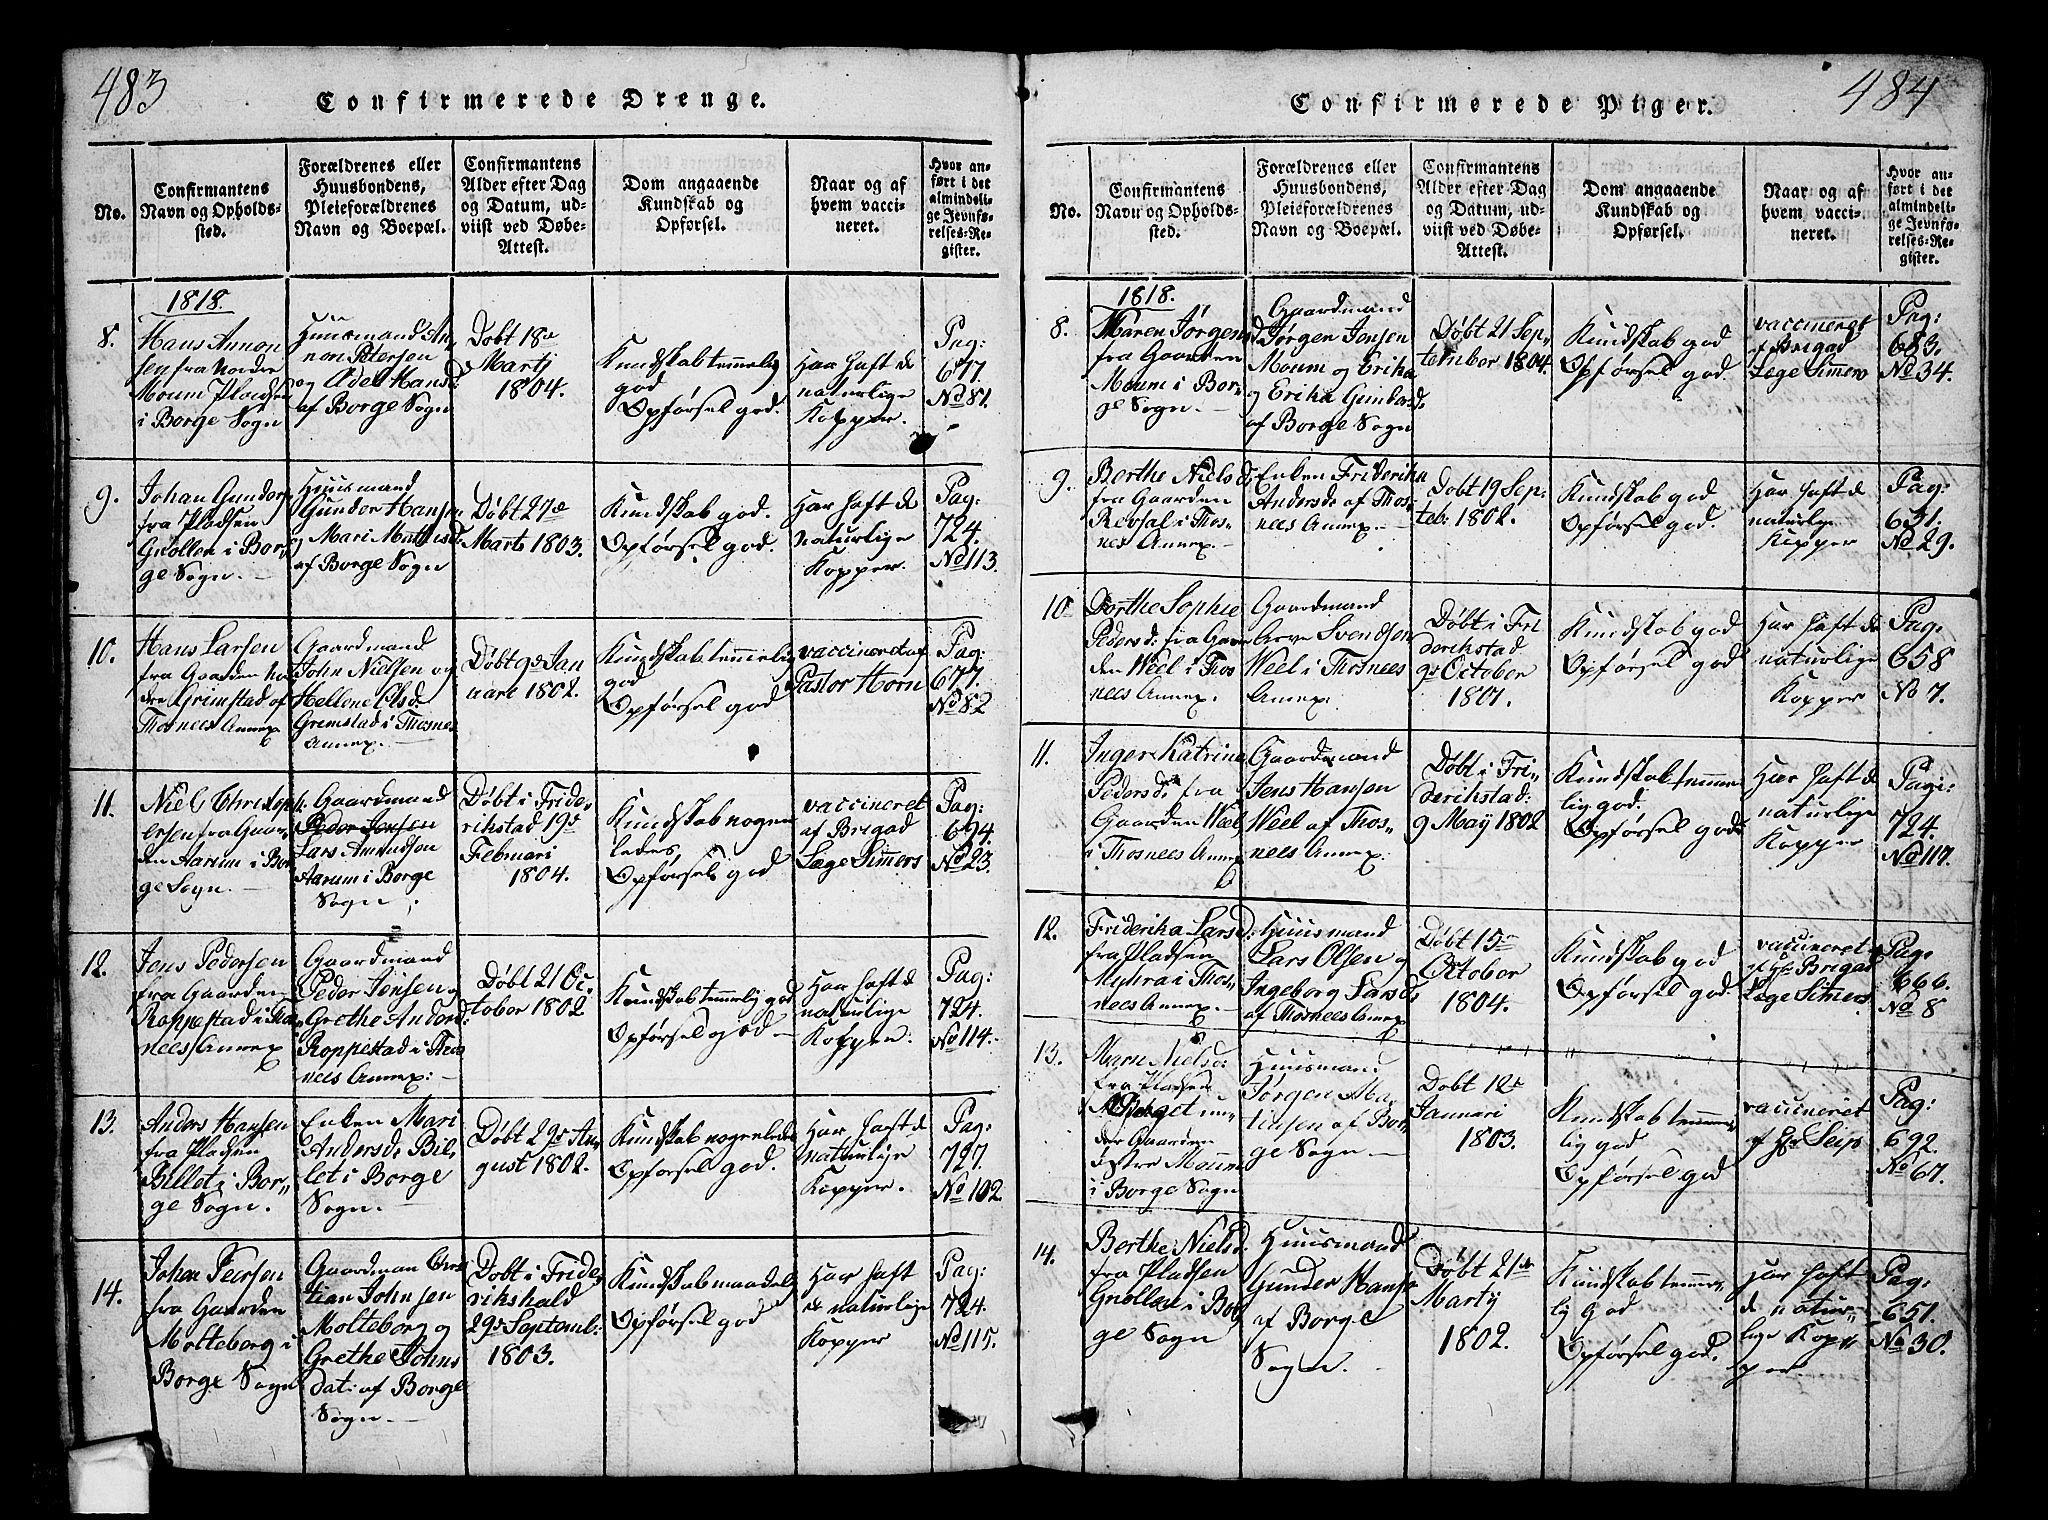 483
Confirmerede Drenge.
No.
Confirmantens
Navn og Opholds-
sted.
Forældrenes eller
Huusbondens,
Pleieforældrenes
Navn og Boepæl.
Confirmantens
Alder efter Dag
og Datum, ud-
viist ved Døbe-
Attest.
Dom angaaende
Kundskab og
Opførsel.
Naar og af
hvem vacci-
neret.
Hvor an-
ført i det
almindeli-
ge Jevnfø-
relses-Re-
gister.
1818.
8.
Hans Annon
sen fra Nordre
Moum Pladsen
i Borge Sogn
Huusmand An
non Petersen
og Adel Hansd:
af Borge Sogn
Døbt 18de
Martj
1804.
Kundskab temmelig
god
Opførsel god.
Har haft de
naturlige
Kopper.
Pag:
677.
No 81.
9.
Johan Gunders
fra Pladsen
Gnollen i Bor"
ge Sogn.
Huusmand
Gunder Hansen
og Mari Mathisd
af Borge Sogn
Døbt 27de
Marts 1803.
Kundskab god.
Opførsel god.
Har haft de
naturlige
Kopper.
Pag:
724.
No 113.
10.
Hans Larsen
fra Gaarden Ne
dre Grimstad af
Thosnees Annex
Gaardmand
John Nielsen og
Hellene Olsd:
Gremstad i Thosnes
Annex.
Døbt 9de Jan
uari 1802.
Kundskab temmelig
god
Opførsel god
vaccineret af
Pastor Horn
Pag:
677.
No 82
11.
Niels Christoph
ersen fra Gaar
den Aarum i Bor
ge Sogn.
Gaardmand
Peder Jensen
Lars Amundsen
Aarum i Borge
Sogn.
Døbt i Fride"
rikstad 19de
Februari
1804.
Kundskab nogen
ledes
Opførsel god
vaccineret
af Brigad
Læge Simers
Pag:
694.
No 23.
12.
Jens Pedersen
fra Gaarden
Roppestad i Thos
nees Annex
Gaardmand
Peder Jensen og
Grethe Andersd:
Roppestad i Thos
nees Annex:
Døbt 21 Oc
tober 1802
Kundskab temmelig god
Opførsel god
Har haft de
naturlige
Kopper.
Pag:
724.
No 114.
13.
Anders Hansen
fra Pladsen
Billet i Bor"
ge Sogn.
Enken Mari
Andersd: Bil
let i Borge
Sogn.
Døbt 29de Au
gust 1802.
Kundskab nogenledes
Opførsel god.
Har haft de
naturlige
Kopper.
Pag:
727.
No 102.
14.
Johan Peersen
fra Gaarden
Molteborg i
Borge Sogn
Gaardman Chris
tian Johnsen
Molteborg og
Grethe Johns
dat: af Borge
Sogn.
Døbt i Fride"
rikshald
29de Septemb:
1803.
Kundskab maadelig
Opførsel god
Har haft
de naturlige
Kopper
Pag:
724.
No 115.
484
Confirmerede Piger.
No.
Confirmantens
Navn og Opholds-
sted.
Forældrenes eller
Huusbondens,
Pleieforældrenes
Navn og Boepæl.
Confirmantens
Alder efter Dag
og Datum, ud-
viist ved Døbe-
Attest.
Dom angaaende
Kundskab og
Opførsel.
Naar og af
hvem vacci-
neret.
Hvor an-
ført i det
almindeli-
ge Jevnfø-
relses-Re-
gister.
1818.
8.
Maren Jørgensd
fra Gaarden
Moum i Bor"
ge Sogn.
Gaardmand
Jørgen Jonsen
Moum og Erika
og Erika Gundersd:
af Borge Sogn
Døbt 21 Sep
tember 1804.
Kundskab god
Opførsel god.
vaccineret
af Brigad
Læge Simers
Pag:
683.
No 34.
9.
Berthe Nielsd:
fra Gaarden
Revhal i Thos"
nes Annex.
Enken Friderika
Andersd: af Thos"
nees Annex.
Døbt 19 Sep"
teb: 1802.
Kundskab god
Opførsel god.
Har haft de
naturlige
Kopper
Pag:
631.
No 29.
10
Dorthe Sophie
Pedersd: fra Gaar
den Weel i Thos
nees Annex.
Gaardmand
Arve Svendsen
Weel i Thosnees
Annex.
Døbt i Fri
derikstad
9de October
1801.
Kundskab god
Opførsel god
Har haft de
naturlige
Kopper
Pag:
658
No 7.
11.
Inger Katrine
Pedersd: fra
Gaarden Weel
i Thosnees Annex
Gaardmand
Jens Hansen
Weel af Thos"
nees Annex:
Døbt i Fri"
derikstad:
9 Maÿ 1802
Kundskab temme
lig god.
Opførsel god
Har haft de
naturlige
Kopper
Pag:
724.
No 117.
12.
Friderika Larsd:
fra Pladsen
Myhra i Thos"
nees Annex.
Huusmand
Lars Olsen og
Ingeborg Larsd:
af Thosnees Annex
Døbt 15de
October
1804.
Kundskab god
Opførsel god
vaccineret
af Hr Brigad
Læge Simers
Pag:
666.
No 8
13.
Maren Nielsd:
fra Pladsen
un"
der Gaarden
østre Moum
i Borge Sogn
Huusmand
Jørgen Ma"
thisen af Bor"
ge Sogn.
Døbt 12de
Januari
1803.
Kundskab temme"
lig god
Opførsel god
vaccineret
af Hr Seip
Pag:
692.
No 67.
14.
Berthe Nielsd.
fra Pladsen
Gnollen i Bor
ge Sogn
Huusmand
Gunder Hansen
af Borge
Sogn.
Døbt 21de
Martÿ
1802.
Kundskab temme"
lig God
Opførsel god.
Har haft
de natur"
lige Kop"
per.
Pag:
651.
No 30.